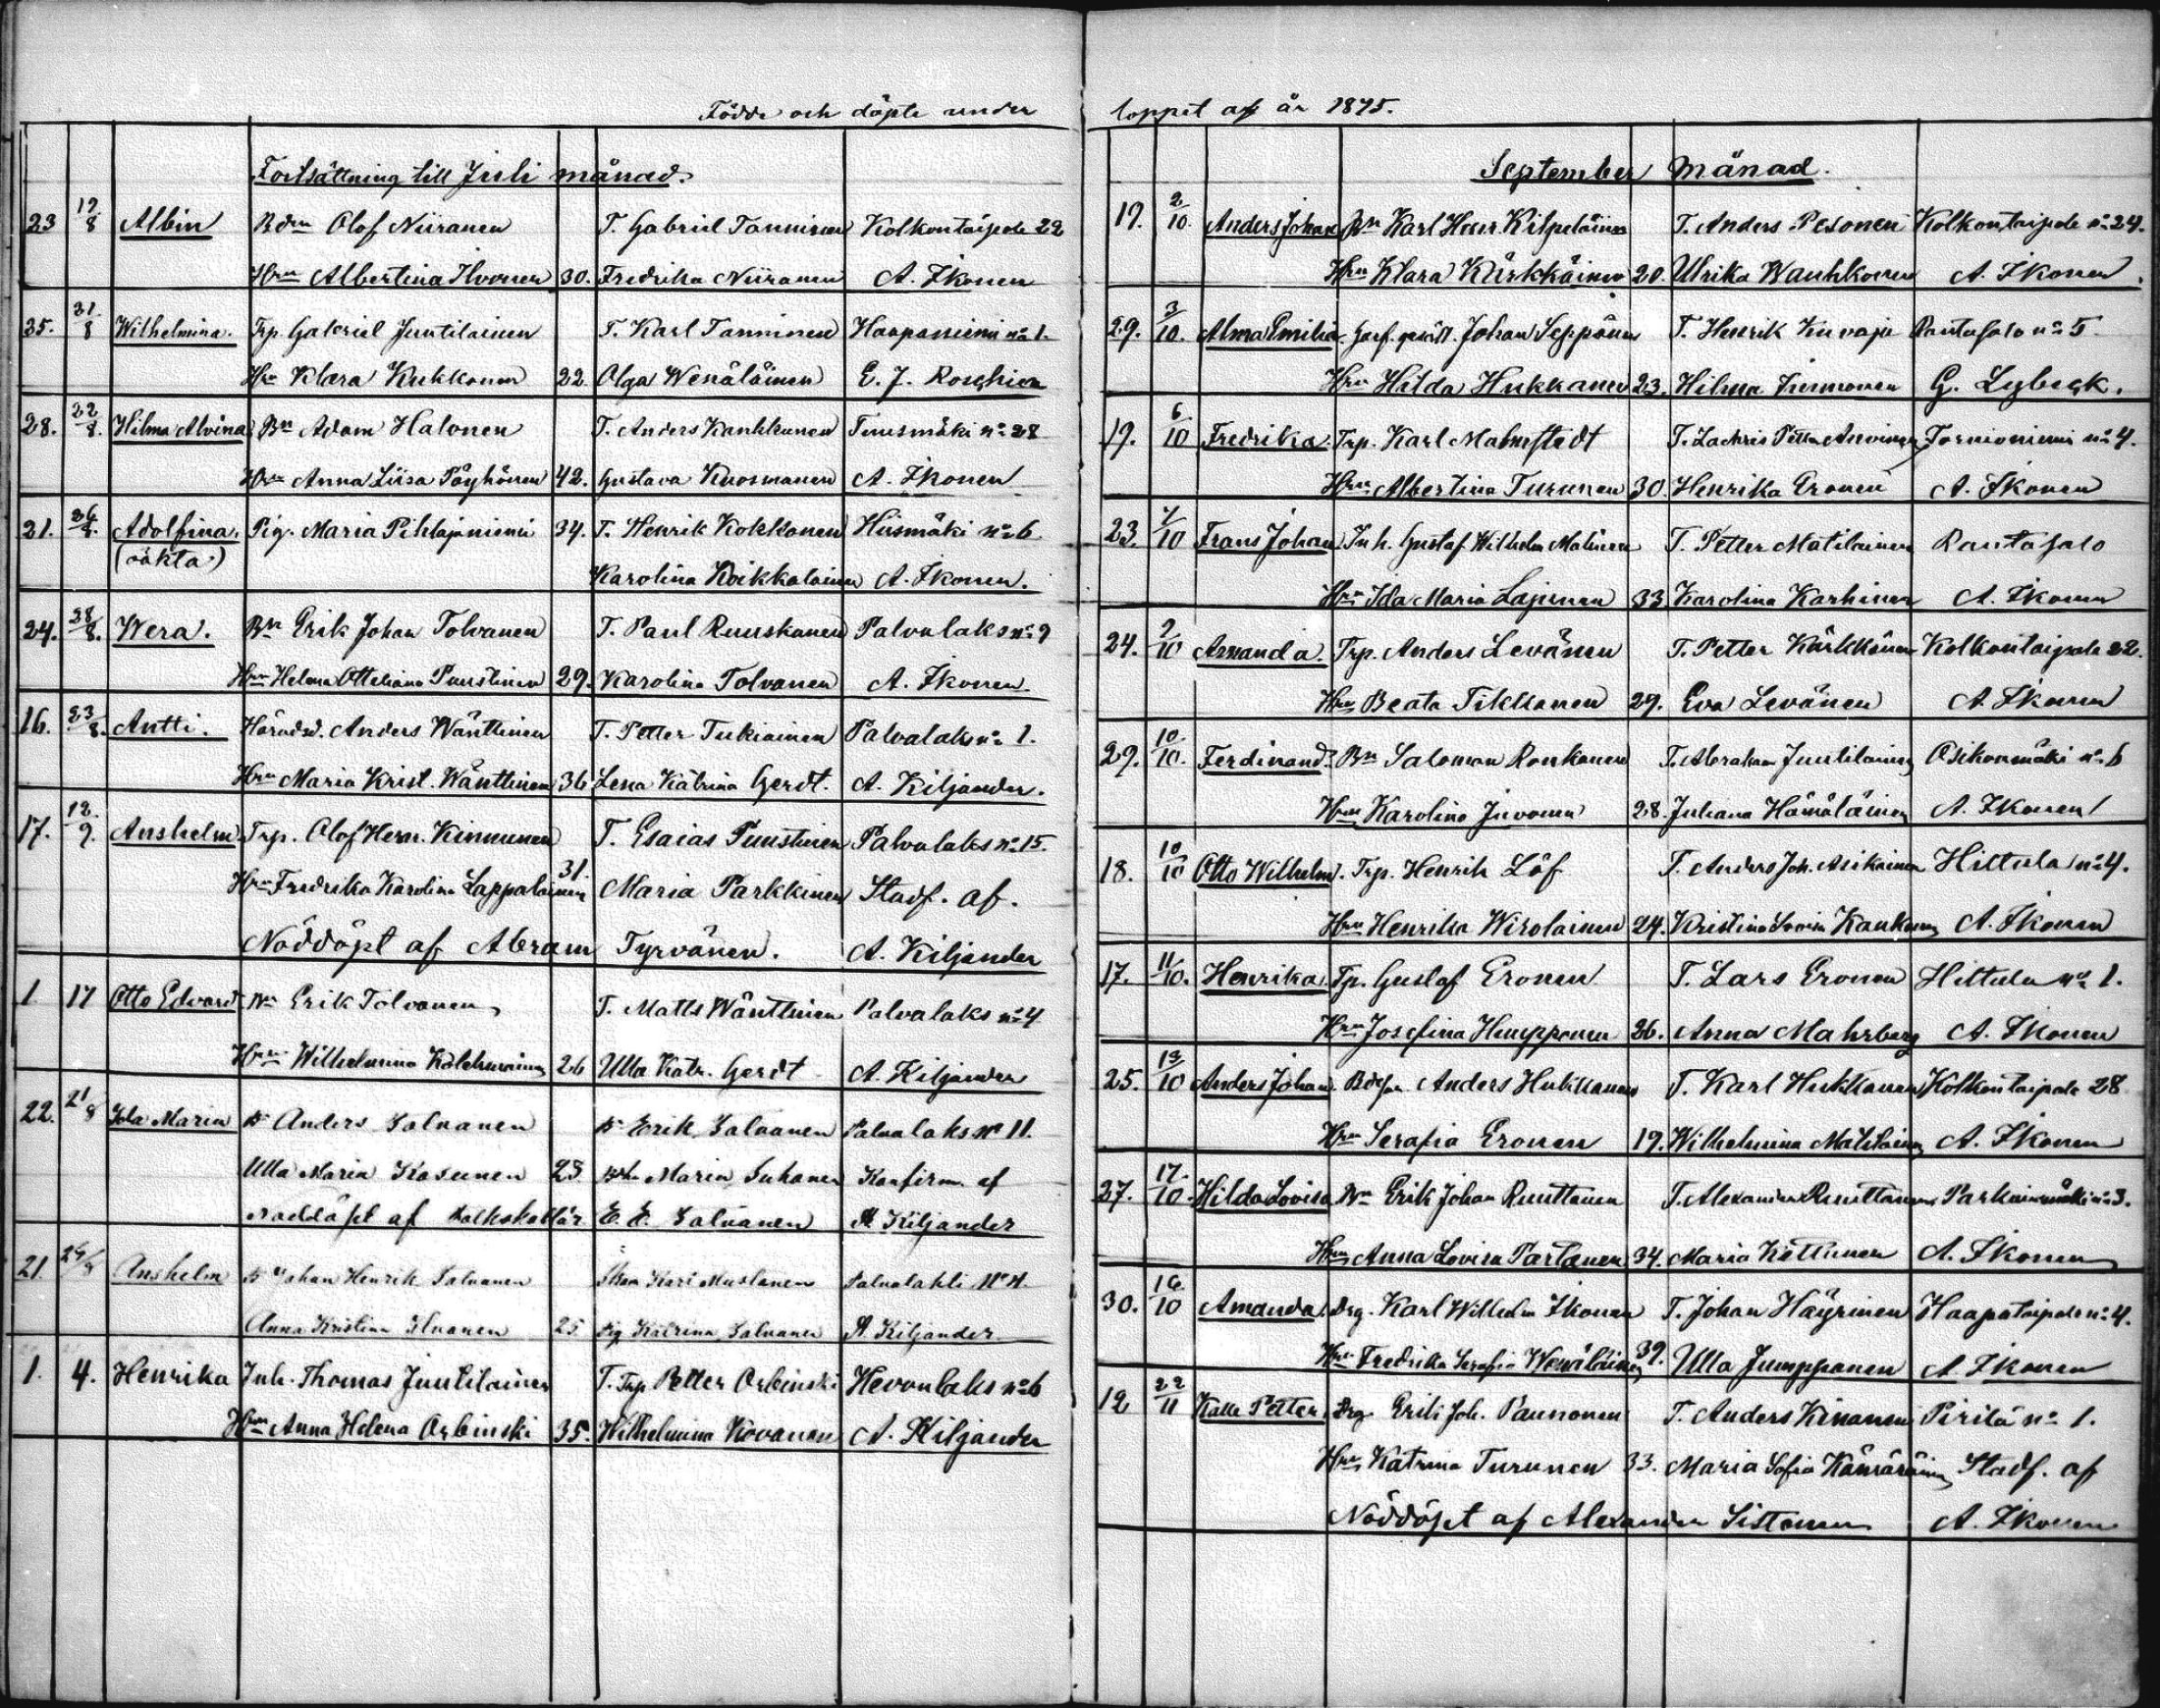 Födde och döpte under
Fortsättning till Juli månad.
23 19/8 Albin Bdrn Olof Niiranen T. Gabriel Tanninen Kolkontaipale 22
Hrn Albertina Ilvonen 30. Fredrika Niiranen A. Ikonen
25. 21/8 Wilhelmina. Trp. Gabriel Juutilainen T. Karl Tanninen Haapaniemi no 1.
Hrn Klara Kukkonen 22 Olga Wenäläinen E. J. Roschier
28. 22/8. Hilma Alvina Bn Adam Halonen T. Anders Kauhkunen Tuusmäki no 28
Hrn Anna Liisa Pöyhönen 42. Gustava Kuosmanen A. Ikonen
21. 26/8. Adolfina. Pig. Maria Pihlajaniemi 34. T. Henrik Kokkonen Hiismäki no 6
(oäkta) Karolina Koikkalainen A. Ikonen.
24. 28/8. Wera. Bn Erik Johan Tolvanen T. Paul Ruuskanen Palvalaks no 9
Hrn Helena Ottiliana Puustinen 29. Karolina Tolvanen A. Ikonen
16. 23/8. Antti. Härads. Anders Wänttinen T. Petter Tukiainen Palvalaks no 1.
Hrn Maria Krist. Wänttinen 36 Lena Katrina Gerdt. A. Kiljander.
17. 12/9. Anshelm Trp. Olof Herm. Kinnunen T. Esaias Puustinen Palvalaks no 15.
Hrn Fredrika Karolina Lappalainen 31. Maria Parkkinen Stadf. af.
Nöddöpt af Abram Tyrvänen. A. Kiljander
1 17 Otto Edvard Bn Erik Tolvanen T. Matts Wänttinen Palvalaks no 4
Hrn Wilhelmina Kolehmainen 26 Ulla Katr. Gerdt A. Kiljander
22. 21/8 Ida Maria B. Anders Salvanen B. Erik Salvanen Palvalaks No 11.
Ulla Maria Kosunen 23 Bh. Maria Suhonen Konfirm. af
nöddöpt af Folkskollär E. E. Salvanen A Kiljander
21. 24/8 Anshelm B. Johan Henrik Salvanen Karl Mustonen Palvalahti No 4.
Anna Kristina Ilvonen 25 Pig Katrina Salvanen A Kiljander
1. 4. Henrika Inh. Thomas Juutilainen T. Trp Petter Orbinski Hevonlaks no 6
Hrn Anna Helena Orbinski 35. Wilhelmina Kovanen A. Kiljander
loppet af år 1875.
September Månad.
17. 2/10. Anders Johan Bn Karl Henr. Kilpeläinen T. Anders Pesonen Kolkontaipale no 24.
Hrn Klara Kärkkäinen 20. Ulrika Wauhkonen A. Ikonen.
29. 3/10. Alma Emilia Garf. gesäll. Johan Seppänen T. Henrik Kuvaja Rantasalo no 5
Hrn Hilda Hukkanen 23. Hilma Immonen G. Lybeck.
19. 6/10 Fredrika. Trp. Karl Malmstedt T. Zachris Petter Tornioniemi no 4.
Hrn Albertina Turunen 30. Henrika Eronen A. Ikonen
23. 7/10 Frans Johan Inh. Gustaf Wilhelm Malinen T. Petter Matilainen Rantasalo
Hrn Ida Maria Lajunen 33 Karolina Karhinen A. Ikonen
24. 9/10 Amanda. Trp. Anders Levänen T. Petter Kärkkänen Kolkontaipale 22.
Hrn Beata Tikkanen 29. Eva Levänen A. Ikonen
29. 10/10. Ferdinand. Bn Salomon Ronkanen T. Abraham Juutilainen Osikonmäki no 6
Hrn Karolina Juvonen 28. Juliana Hämäläinen A. Ikonen
18. 10/10 Otto Wilhelm. Trp. Henrik Löf T. Anders Joh. Asikainen Hiltula no 4.
Hrn Henrika Wirolainen 24. Kristina Lovisa A. Ikonen
17. 11/10. Henrika. Tp. Gustaf Eronen T. Lars Eronen Hiltula no 1.
Hrn Josefina Humpponen 26. Anna Mahrberg A. Ikonen
25. 13/10 Anders Johan Bdeson Anders Hukkanen T. Karl Hukkanen Kolkontaipale 28
Hrn Serafia Eronen 19. Wilhelmina Matilainen A. Ikonen
27. 17/10. Hilda Lovisa Bn Erik Johan Ruuttanen T. Alexander Ruuttanen Parkuinmäki no 3.
Hrn Anna Lovisa Partanen 34. Maria Köttunen A. Ikonen
30. 16/10 Amanda. Drg. Karl Wilhelm Ikonen T. Johan Häyrinen Haapataipale no 4.
Hrn Fredrika Serafia Wenäläinen 39. Ulla Jumpponen A. Ikonen
12 22/11 Kalle Petter Drg. Erik Joh. Paunonen T. Anders Kinanen Pirilä no 1.
Hrn Katrina Turunen 33. Maria Sofia Kämäräinen Stadf. af
Nöddöpt af Alexander Sistonen A. Ikonen